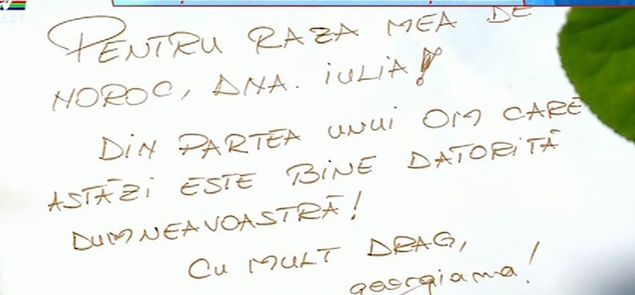 PENTRU RAZA MEA DE
NOROC, DNA. IULIA!
DIN PARTEA UNUI OM CARE
ASTĂZI ESTE BINE DATORITĂ
DUMNEAVOASTRĂ!
CU MULT DRAG,
georgiana!